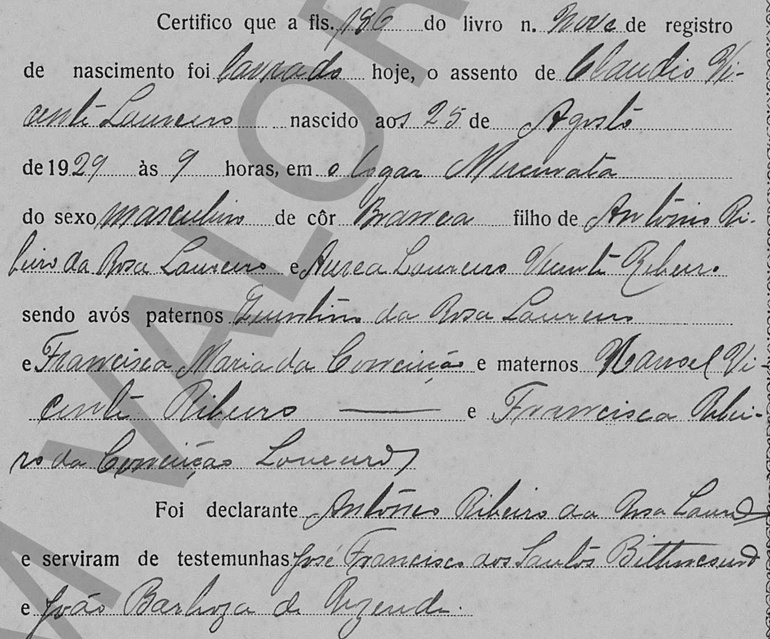 Certifico que a fls. 186 do livro n. Nove de registro
de nascimento foi lavrado hoje, o assento de Claudio Vi-
cente Loureiro nascido aos 25 de Agosto
de 1929 às 9 horas, em o logar
do sexo masculino de côr Branca filho de Antônio Ri-
beiro da Rosa Loureiro e Aurea Loureiro Vicente Ribeiro
sendo avós paternos da Rosa Loureiro
e Francisca Maria da Conceição e maternos Manoel Vi-
cente Ribeiro e Francisca Ribei-
ro da Conceição Loureiro
Foi declarante Antônio Ribeiro da Rosa
e serviram de testemunhas José Francisco dos Santos Bittencourt
e João Barboza de Rezende.
VALOR